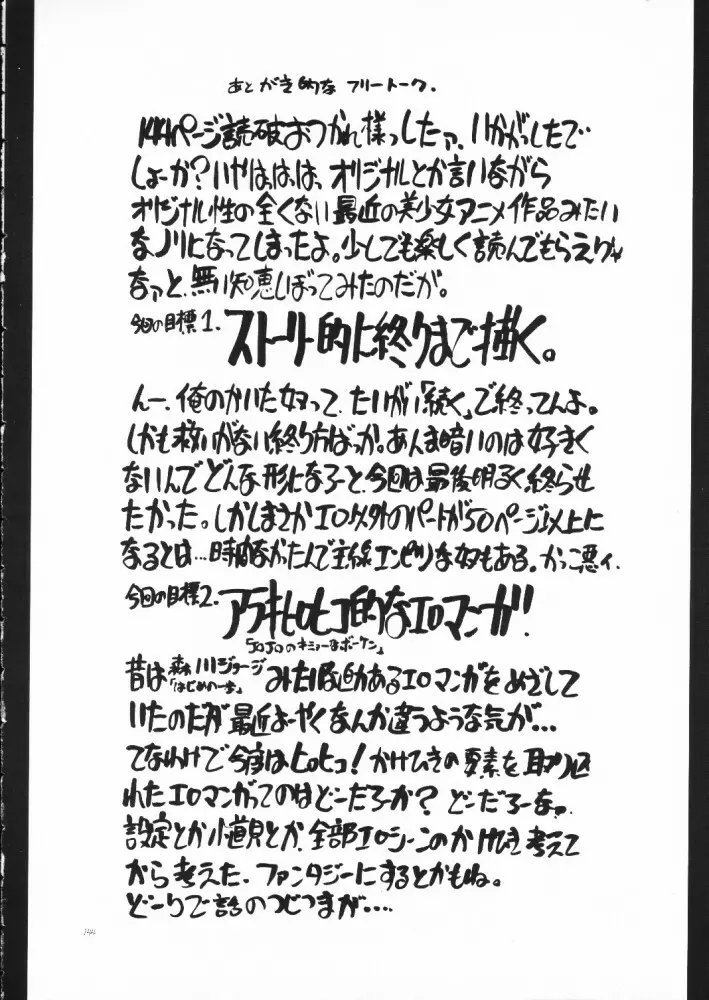 あとがき的な フリートーク.
144ページ読破おつかれ様っしたァ、いかがっしたで
しょーか?いやはっはっは、オリジナルとか言いながら
オリジナル性の全くない最近の美少女アニメ作品みたい
なノリになってしまったよ。少しでも楽しく読んでもらえりゃ
なァっと、無い知恵しぼってみたのだが。
今回の目標1.ストーリー的に終りまで描く。
んー、俺のかいた奴って、たいがい「続く」で終ってんよ。
しかも救いがない終り方ばっか。あんま暗いのは好きく
ないんでどんな形になろーと、今回は最後明るく終らせ
たかった。しかしまさかエロ以外のパートが50ページ以上に
なるとは…時間なかたんで主線エンピツな奴もある。かっこ悪ィ.
今回の目標2.アラキヒロヒコ的なエロマンガ!
「JoJoのキミョーなボーケン」
昔は森川ジョージ「はじめの一歩」みたいな迫力あるエロマンガをめざして
いたのだが最近よーやくなんか違うような気が…
てなわけで今度はヒロヒコ!かけひきの要素を取り込
れたエロマンガってのはどーだろーか?どーだろーなァ.
設定とか小道具とか、全部エロシーンのかけひき考えて
から考えた、ファンタジーにするとかもね。
どーりで話のつじつまが….
144